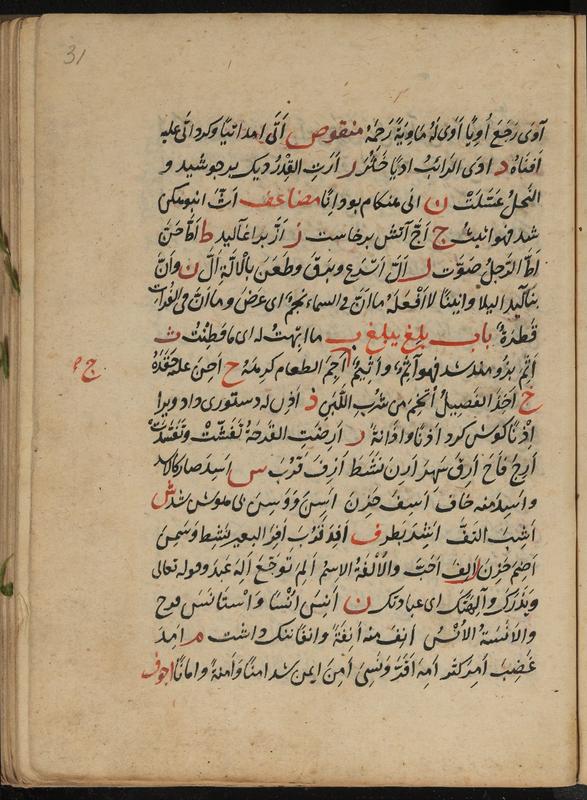 31
آوى رجع أويا أوى له ماوية رحمه منقوص أتى امد اتيا وكرد اتى عليه
افناه د ادى الرائب اديا خثر ر ارت القدر ديك برجوشيد و
النحل عسلت ن انى هنكام بود وانا مضاعف اث انبوهكى
شد فهو اثيث ج اج آتش برخاست ز از براغاليد ط اط حن
اط الرجل صوت ل ال اسرع وبرق وطعن بالالة ال ن وان
بناليد اليلا وانينا لا افعله ما ان فى السماء نجم اى عرض وما ان فى الفرات
قطرة باب بلغ يبلغ ب ما ابهت له اى ما فطنت ث
اثم بزومند شد فهو آثم واثيم اجم الطعام كرهه ح احن عليه حقد
ج
خ اخذ الفصيل اتخم من شرب اللبن ذ اذن له دستورى داد ويرا
اذنا كوش كرد اذنا واذانة ر ارضت القرحة تفشت وتفسدت
ارج فاح ارق سهر ارن نشط ازف قرب س اسد صار كالاسد
واسد منه خاف اسف حزن اسن ووسن بى هوش شد ش
اشب التف اشر بطر ف افد قرب افر البعير نشط وسمن
اضم حزن الف احب والالفة الاسم الم توجع اله عبد وقوله تعالى
ويذرك وآلهتك اى عبادتك ن انس انسا واستانس فرح
والانسة الانس انف منه انفة وانفا ننك داشت م امد
غضب امر كثر امه اقر ونسى امن ايمن شد امنا وامنة وامانا اجوف